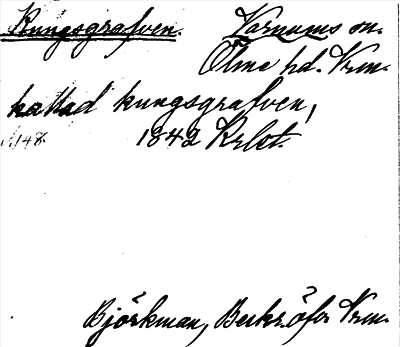 Kungsgrafven. Varnums sn.
Ölme hd. Vrm.
kallad kungsgrafven,
148. 1842 Krlst.
Björkman, Beskr. öfver Vrm.